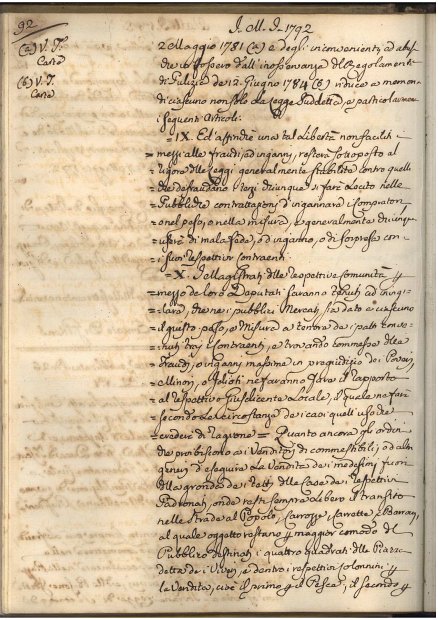 92.
J. M. J. 1792
(a) V. T.
Carte
(b) V. T.
Carte
2 Maggio 1781 (a) e degli inconvenienti, ed abusi
che dall'inosservanza del Regolamento
di Pulizia de 12. Giugno 1784 (b) riduce a memoria
di ciascuno non solo la Legge suddetta, e particolarmente
i seguenti Articoli.
= IX. Ed affinchè una tal Libertà non faciliti i
= mezzi alle fraudi, ed inganni, resterà sottoposto al
= rigore delle Leggi generalmente stabilite contro quelli
= che defraudano i terzi chiunque si farà lecito nelle
= Pubbliche contrattazioni d'ingannare i Compratori
= o nel peso, o nella misura, e generalmente chiunque
= userà di mala fede, o d'inganno, o di sorpresa con
= i suoi respettivi contraenti.
= X. I Magistrati delle respettive Comunità p
= mezzo de loro Deputati saranno tenuti ad invigi=
= lare, che nei pubblici Mercati sia dato a ciascuno
= il giusto peso, e Misura a tenore dei patti conve=
= nuti tra i Contraenti, e trovando commesse delle
= Fraudi, o inganni massime in pregiudizio dei Poveri,
= Minori, o Idioti ne faranno fare il rapporto
= al respettivo Giusdicente Locale, il quale
= secondo le circostanze dei casi quell'uso che
= crederà di ragione = Quanto ancora gli ordini
che proibiscono ai Venditori di commestibili, ed altri
generi d'eseguire la Vendita dei medesimi fuori
della gronda dei tetti delle Case dei respettivi
Padronati, onde resti sempre libero il transito
nelle Strade al Popolo, Carrozze, Carrette, e Barrocci,
al quale oggetto restano p maggior comodo del
Pubblico destinati i quattro quadrati delle Piazze
detta dei Viveri, e dentro i respettivi p
la Vendita, cioè il primo p il Pesce, il secondo p